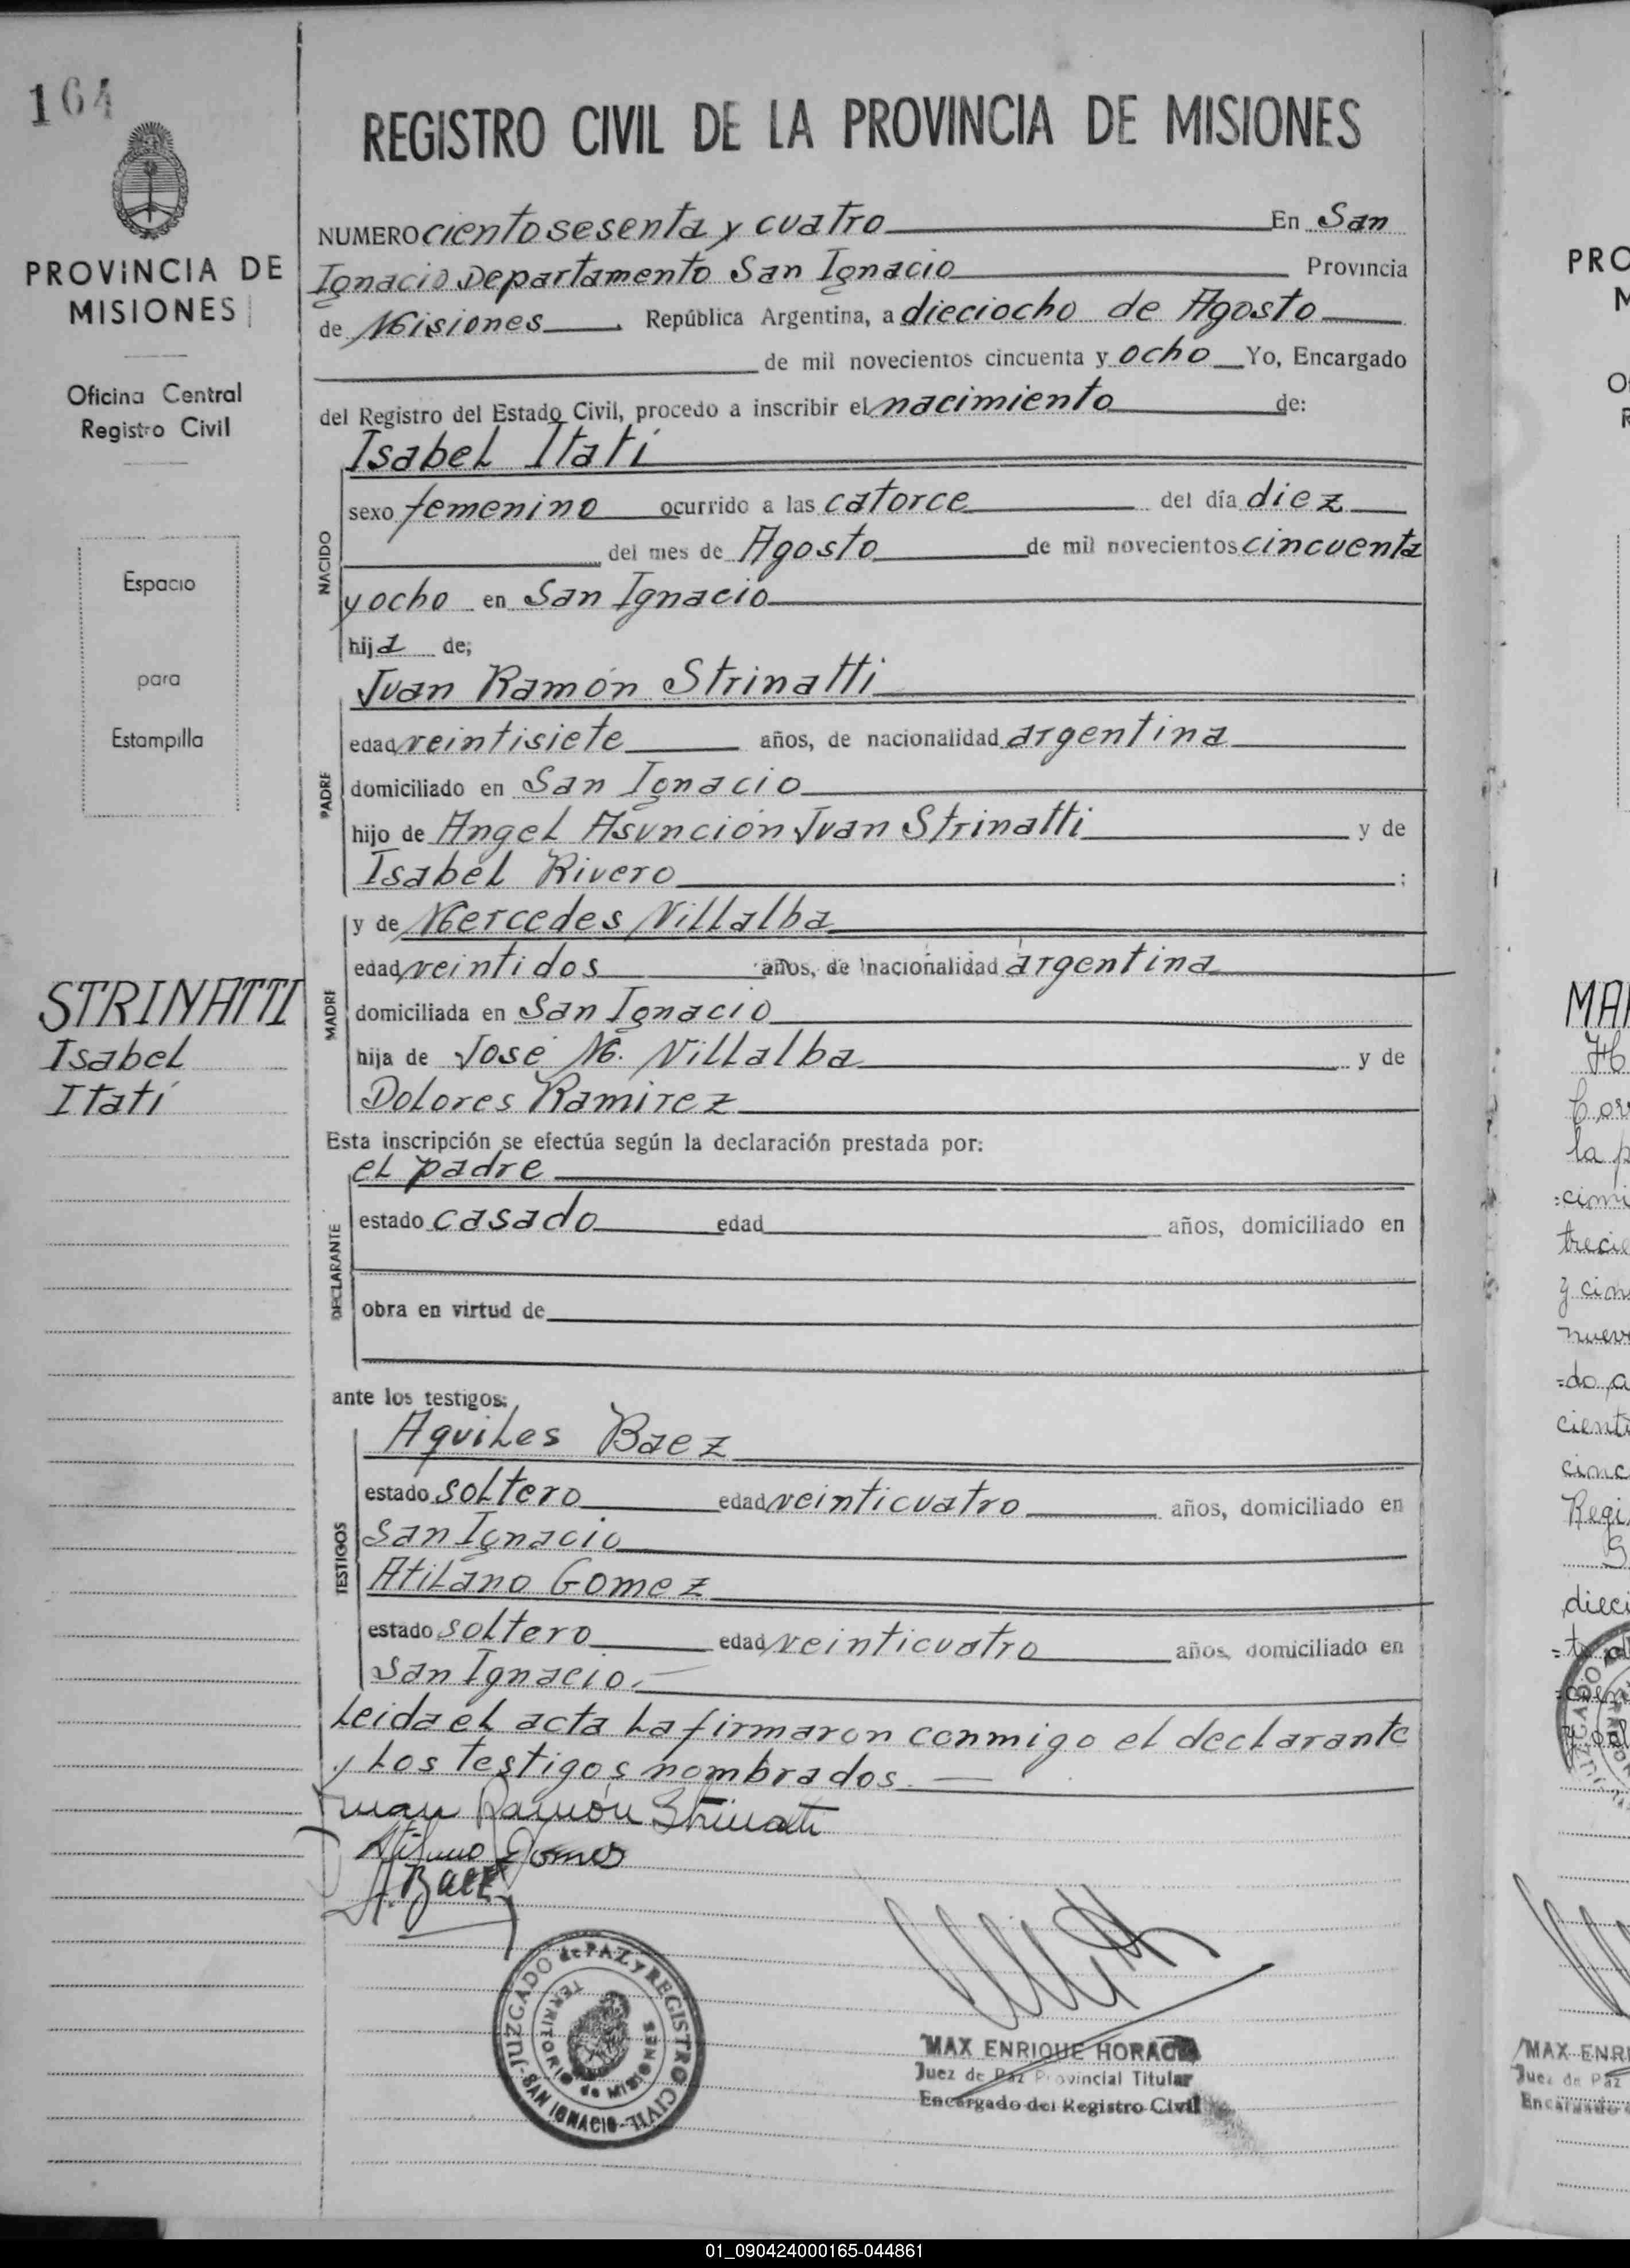 164
PROVINCIA DE
MISIONES
Oficina Central
Registro Civil
Espacio
para
Estampilla
STRINATTI
Isabel
Itatí
REGISTRO CIVIL DE LA PROVINCIA DE MISIONES
NUMERO ciento sesenta y cuatro En San
Ignacio Departamento San Ignacio Provincia
de Misiones República Argentina, a dieciocho de Agosto
de mil novecientos cincuenta y ocho Yo, Encargado
del Registro del Estado Civil, procedo a inscribir el nacimiento de:
Isabel Itatí
NACIDO
sexo femenino ocurrido a las catorce del día diez
del mes de Agosto de mil novecientos cincuenta
y ocho en San Ignacio
hija de;
PADRE
Juan Ramón Strinatti
edad veintisiete años, de nacionalidad argentina
domiciliado en San Ignacio
hijo de Angel Asunción Juan Strinatti y de
Isabel Rivero ;
MADRE
y de Mercedes Villalba
edad veintidos años, de nacionalidad argentina
domiciliada en San Ignacio
hija de José M. Villalba y de
Dolores Ramirez
Esta inscripción se efectúa según la declaración prestada por:
DECLARANTE
el padre
estado casado edad años, domiciliado en
obra en virtud de
ante los testigos:
TESTIGOS
Aquiles Baez
estado soltero edad veinticuatro años, domiciliado en
San Ignacio
Atilano Gomez
estado soltero edad veinticuatro años, domiciliado en
San Ignacio.
Leida el acta la firmaron conmigo el declarante
y los testigos nombrados.
Juan Ramón Strinatti
Atilano Gomez
A. Baez
JUZGADO de PAZ y REGISTRO CIVIL - SAN IGNACIO -
TERRITORIO de MISIONES
MAX ENRIQUE HORACIO
Juez de Paz Provincial Titular
Encargado del Registro Civil
PRO
MAX ENRI
Juez de Paz
01_090424000165-044861